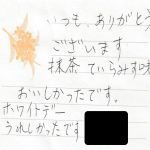 いつも、ありがとう
ございます
抹茶 てぃらみす味
おいしかったです。
ホワイトデー
うれしかったです